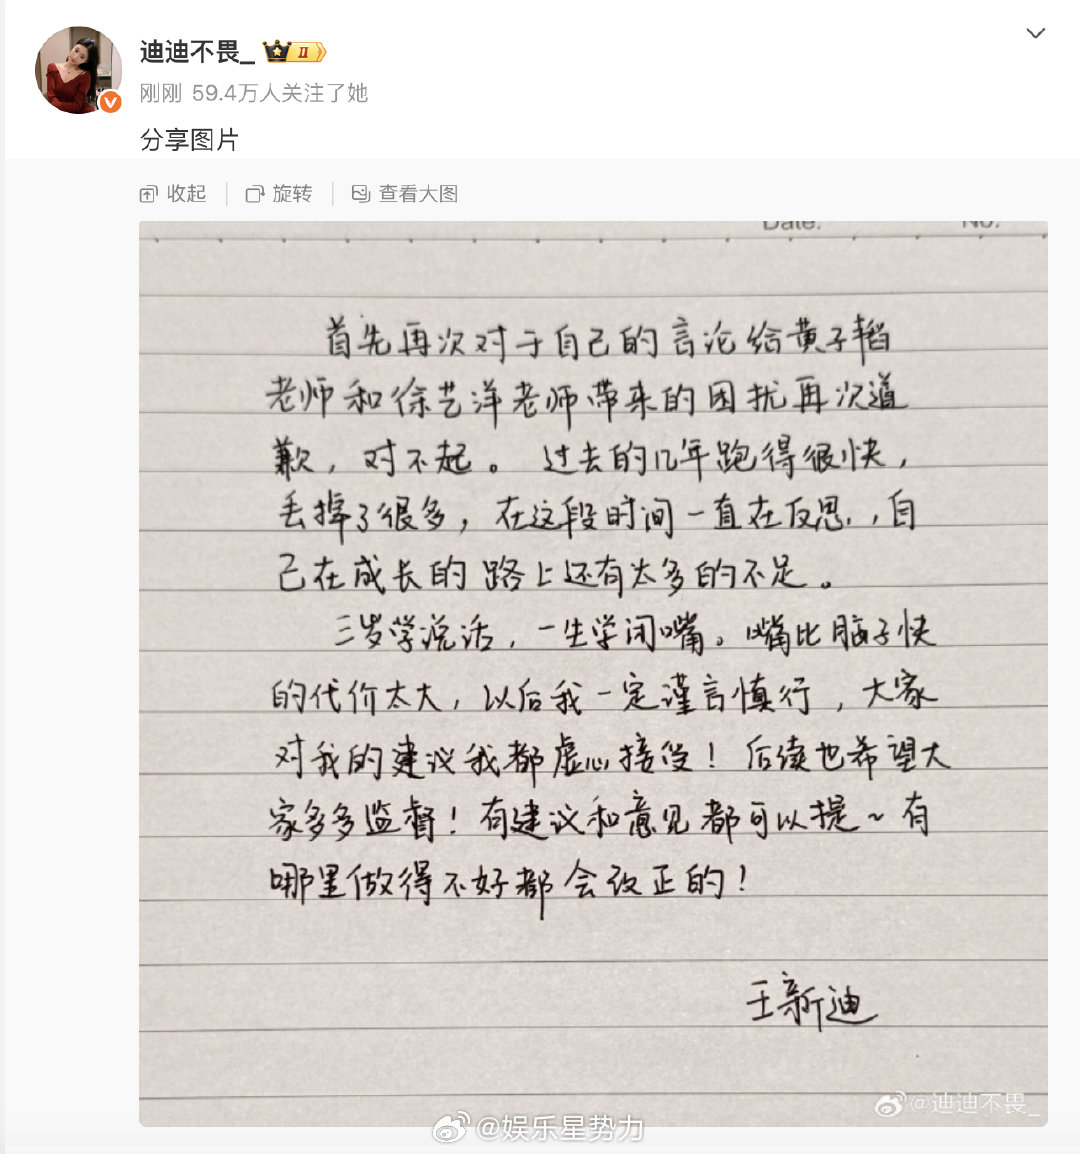 迪迪不畏_ II
刚刚 59.4万人关注了她
分享图片
收起 旋转 查看大图
Date. No.
首先再次对于自己的言论给黄子韬
老师和徐艺洋老师带来的困扰再次道
歉，对不起。过去的几年跑得很快，
丢掉了很多，在这段时间一直在反思，自
己在成长的路上还有太多的不足。
三岁学说话，一生学闭嘴。嘴比脑子快
的代价太大，以后我一定谨言慎行，大家
对我的建议我都虚心接受！后续也希望大
家多多监督！有建议和意见都可以提~有
哪里做得不好都会改正的！
王新迪
@迪迪不畏_
@娱乐星势力